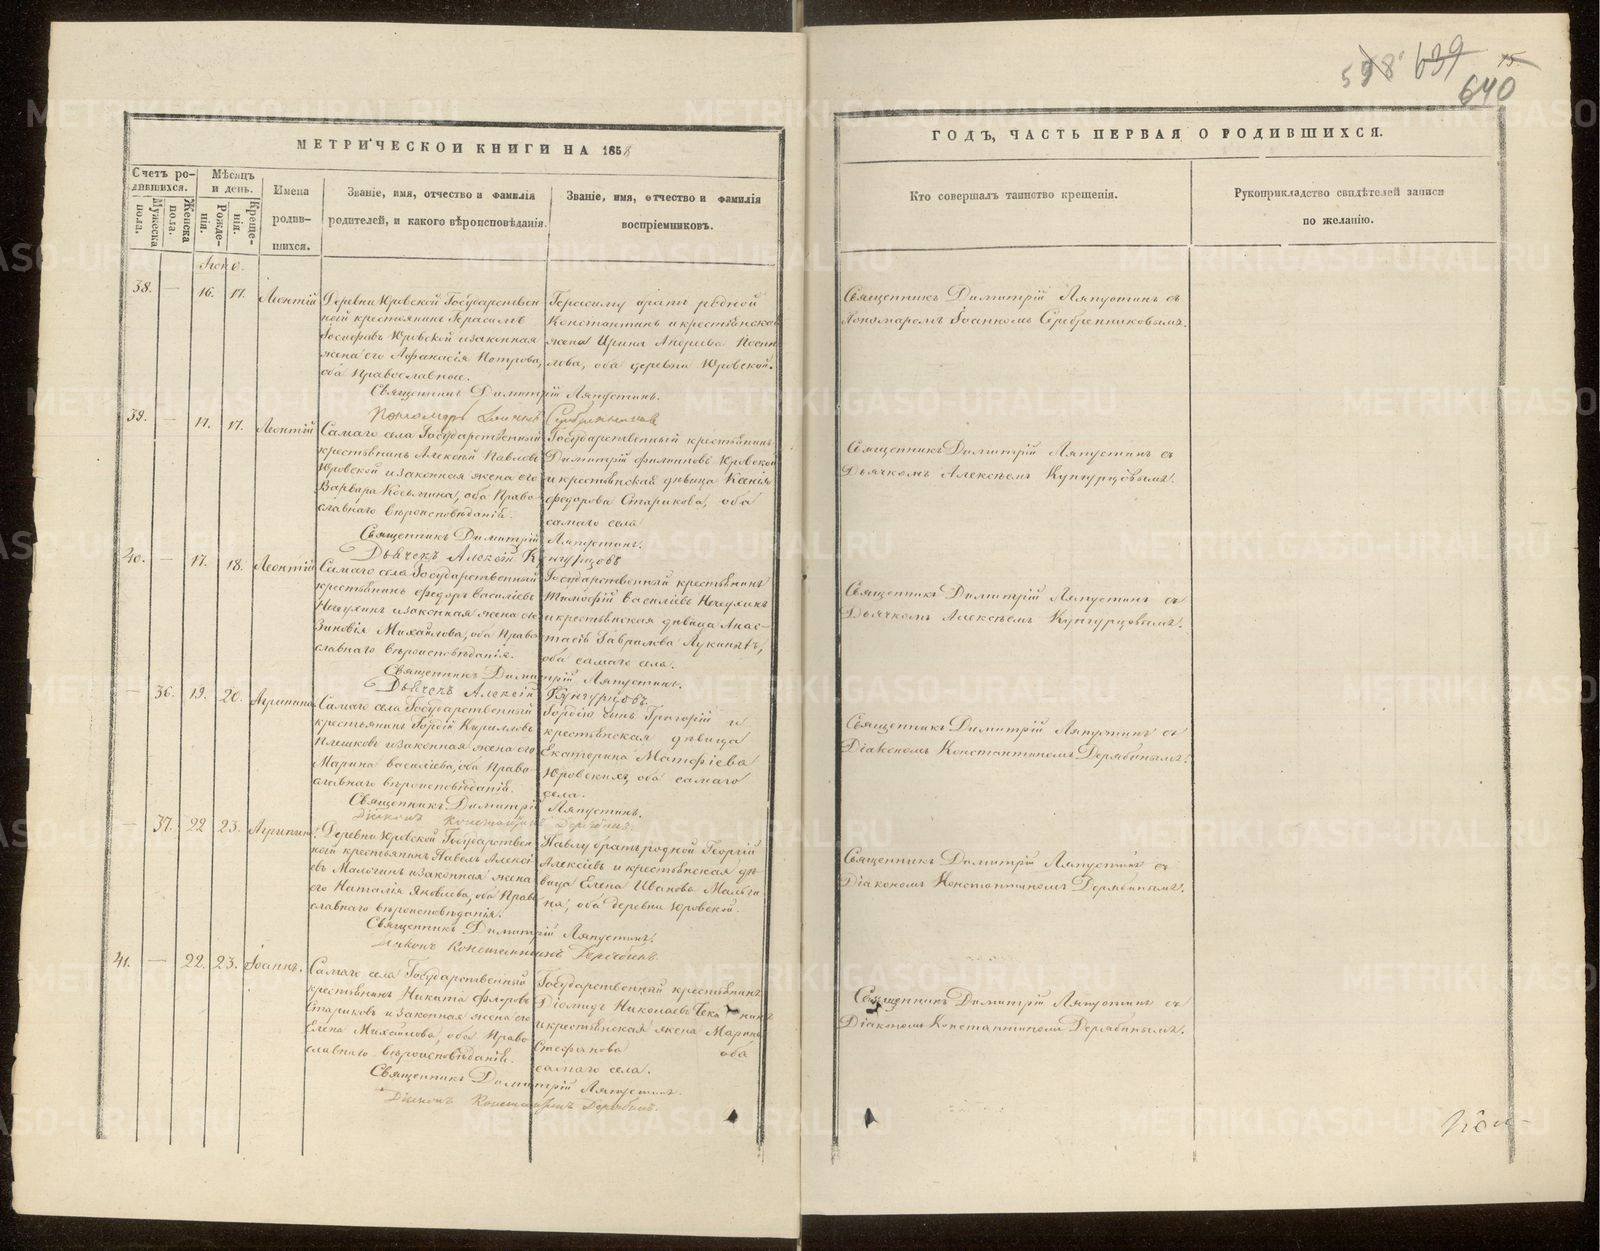 598 639 15
640
МЕТРИЧЕСКОЙ КНИГИ НА 1858
ГОДЪ, ЧАСТЬ ПЕРВАЯ О РОДИВШИХСЯ.
Счетъ родившихся.
Мужеска пола.
Женска пола.
Мѣсяцъ и день.
Рожденія.
Крещенія.
Имена родившихся.
Званіе, имя, отчество и фамилія
родителей, и какого вѣроисповѣданія.
Званіе, имя, отчество и фамилія
воспріемниковъ.
Кто совершалъ таинство крещенія.
Рукоприкладство свидѣтелей записи
по желанію.
38. — 16. 17. Леонтій
Деревни Юровской Государствен
ной крестьянинъ Герасимъ
Іосифовъ Юровской и законная
жена его Афанасія Петрова,
оба Православные.
Герасиму братъ родной
Константинъ и крестьянская
жена Ирина Андреева
оба деревни Юровской.
Священникъ Димитрій Ляпустинъ.
Пономарь Іоаннъ Серебренниковъ
Священникъ Димитрій Ляпустинъ съ
Пономаремъ Іоанномъ Серебренниковымъ.
39. — 17. 17. Леонтій
Самаго села Государственный
крестьянинъ Алексій Павловъ
Юровской и законная жена его
Варвара Косьмина, оба Право-
славнаго вѣроисповѣданія.
Государственный крестьянинъ
Димитрій Филипповъ Юровской
и крестьянская дѣвица Ксенія
Федорова Старикова, оба
самаго села
Священникъ Димитрій Ляпустинъ.
Дьячекъ Алексій Кунгурцовъ
Священникъ Димитрій Ляпустинъ съ
Дьячкомъ Алексѣемъ Кунгурцовымъ.
40. — 17. 18. Леонтій
Самаго села Государственный
крестьянинъ Федоръ Василіевъ
и законная жена его
Зиновія Михайлова, оба Право
славнаго вѣроисповѣданія.
Государственный крестьянинъ
Тимофій Василіевъ
и крестьянская дѣвица Анас-
тасія Гаврилова
оба самаго села.
Священникъ Димитрій Ляпустинъ.
Дьячекъ Алексій Кунгурцовъ.
Священникъ Димитрій Ляпустинъ съ
Дьячкомъ Алексѣемъ Кунгурцовымъ.
— 36. 19. 20. Агрипина
Самаго села Государственный
крестьянинъ Гордій Кириловъ
Плешковъ и законная жена его
Марина Василіева, оба Право-
славнаго вѣроисповѣданія.
Гордію сынъ Григорій и
крестьянская дѣвица
Екатерина Матфіева
Юровских, оба самаго
села.
Священникъ Димитрій Ляпустинъ.
Діаконъ Константинъ Дерябинъ.
Священникъ Димитрій Ляпустинъ съ
Діакономъ Константиномъ Дерябинымъ.
— 37. 22 23. Агрипина
Деревни Юровской Государствен
ной крестьянинъ Павелъ Алексі
евъ и законная жена
его Наталія Яковлева, оба Право
славнаго вѣроисповѣданія.
Павлу братъ родной Георгій
Алексіевъ и крестьянская дѣ
вица Елена Иванова
оба деревни Юровской.
Священникъ Димитрій Ляпустинъ.
Діаконъ Константинъ Дерябинъ.
Священникъ Димитрій Ляпустинъ съ
Діакономъ Константиномъ Дерябинымъ.
41. — 22. 23. Іоаннъ.
Самаго села Государственный
крестьянинъ Никита Флоровъ
Стариковъ и законная жена его
Елена Михайлова, оба Право
славнаго вѣроисповѣданія.
Государственный крестьянинъ
Діомидъ Николаевъ
и крестьянская жена Марина
Стефанова оба
самаго села.
Священникъ Димитрій Ляпустинъ.
Діаконъ Константинъ Дерябинъ.
Священникъ Димитрій Ляпустинъ съ
Діакономъ Константиномъ Дерябинымъ.
METRIKI.GASO-URAL.RU